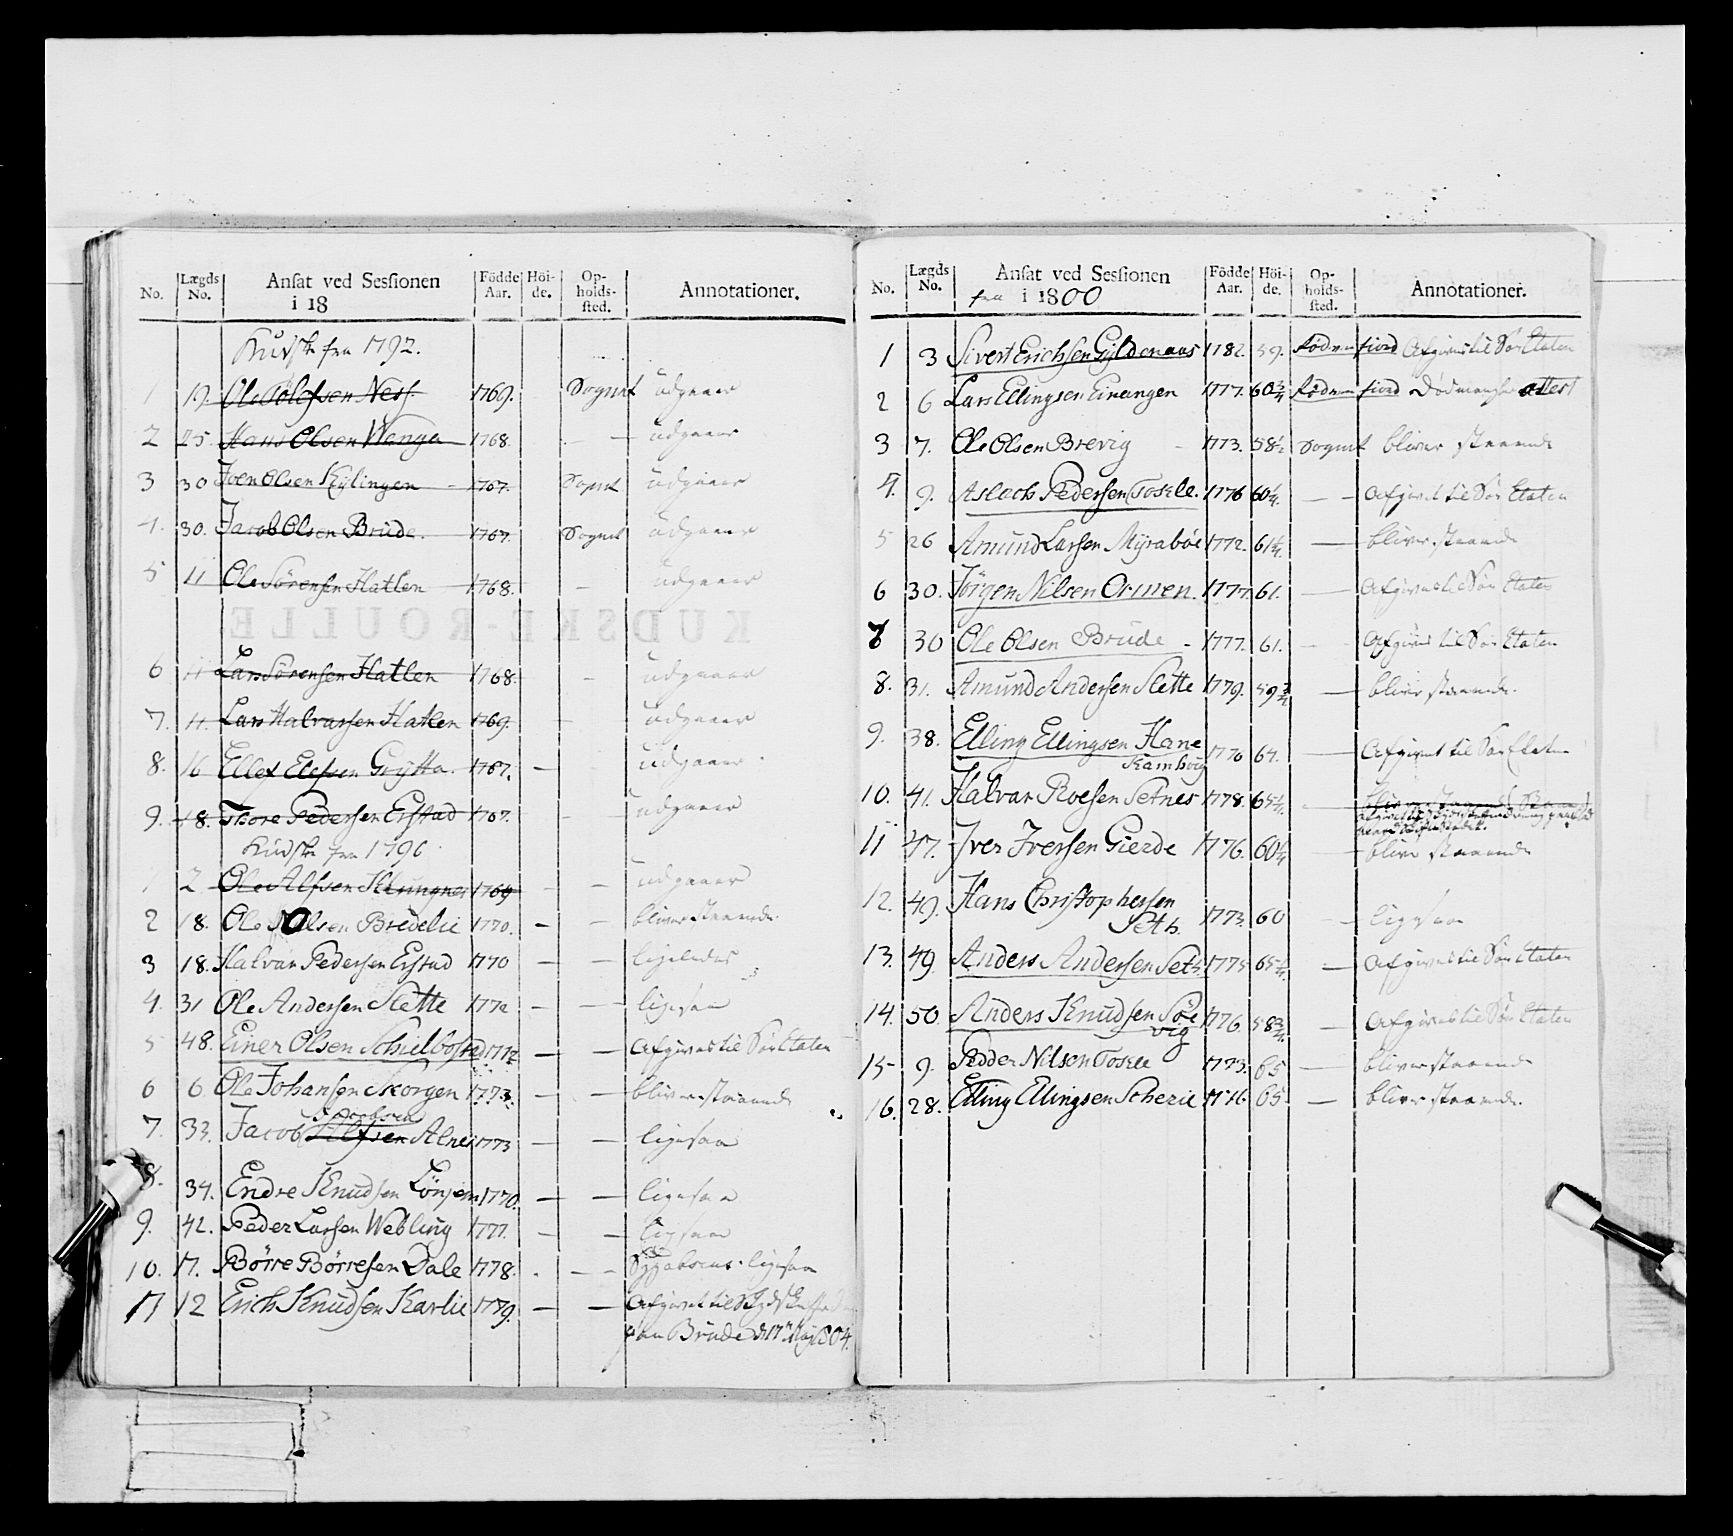 No. Lægds No. Ansat ved Sessionen i 18 Födde Aar. Höi-de. Op-holds-sted. Annotationer.
Kudske fra 1792.
1 19. Ole Tolefsen Ness 1769. Sognet udgaaer
2 25. Hans Olsen Wenga 1768. — udgaaer
3 30 Iven Olsen Kylingen 1767. Sognet udgaaer
4. 30. Jacob Olsen Brude. 1767. Sognet udgaaer
5 11 Ole Sörensen Hatlen 1768. - udgaaer
KUDSKE-ROULLE
6 11 Lars Sörensen Hatlen 1768. - udgaaer
7. 11. Lars Halvarsen Hatlen 1769. udgaaer
8. 16 Ellef Elefsen Grytta. 1767. — udgaaer.
9. 18. Thore Pedersen Erstad 1767. udgaaer
Kudske fra 1796.
1 2 Ole Alfsen Klungnes 1769 — udgaaer
2 18. Ole Olsen Bredelie 1770. — — bliver staaende
3 18. Halvar Pedersen Erstad 1770 — — ligeledes
4. 31 Ole Andersen Slette 1772 — — ligesaa
5 48. Einer Olsen Schielbostad 1772 — — Afgives til Söe Etaten
6 6 Ole Johansen Skorgen 1773. — — bliver staaende
7. 33. Jacob Alnes 1773 — — ligesaa
8. 34. Endre Knudsen Lönsem 1770. — — ligesaa
9. 42. Peder Larsen Webling 1777. — — ligesaa
10. 17. Börre Börresen Dale 1778. — ligesaa
11 12 Erich Knudsen Karlie 1779. — — Afgivet til
Brude d 17 May 1804.
No. Lægds No. Ansat ved Sessionen fra i 1800 Födde Aar. Höi-de. Op-holds-sted. Annotationer.
1 3 Sivert Erichsen Gyldenaas 1782. 59. Rödven fiord Afgives til Söe Etaten
2 6 Lars Ellingsen Einangen 1777. 60 3/4 Rödven fiord attest
3 7. Ole Olsen Brevig 1773. 58½ Sognet bliver staaende
4. 9. Aslach Pedersen Toskle. 1776 60¼. — Afgivet til Söe Etaten
5 26 Amund Larsen Myraböe 1772. 61¼. — bliver staaende
6 30. Jörgen Nilsen Ormen. 1777. 61. — Afgives til Söe Etaten
7 30 Ole Olsen Brude - 1777. 61. — Afgives til Söe Etaten
8. 31. Amund Andersen Slette 1779. 59 3/4 — bliver staaende.
9. 38. Elling Ellingsen Hane
Kamhoug 1770 64. — Afgivet til Söe Etaten
10. 41. Halvar Roesen Setnes 1778. 65½.
11 47. Iver Iversen Gierde 1776. 60¼ — bliver staaende
12. 49. Hans Christophersen
Seth 1773. 60 — ligesaa
13. 49 Anders Andersen Seth 1775 65½. — Afgives til Söe Etaten
14. 50. Anders Knudsen Söe
vig 1776 58 3/4. — Afgives til Söe Etaten
15 9. Pedder Nilsen Toskle 1773. 65 — bliver staaende
16. 28. Elling Ellingsen Scherie 1776 65 — bliver staaende.